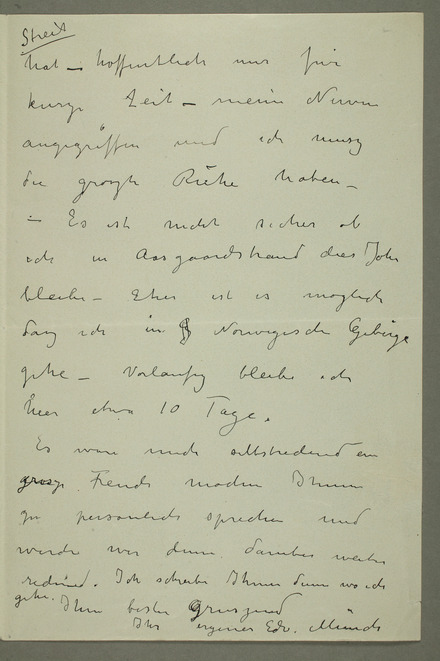 Streit
hat – hoffentlich nur für
kurze Zeit – meine Nerven
angegriffen und ich musz
die groszte Ruhe haben –
– Es ist nicht sicher ob
ich in Aasgaardstrand dies Jahr
bleibe – Eher ist es moglich
dasz ich in Norwegische Gebirge
gehe – Vorlaufig bleibe ich
hier etwa 10 Tage.
Es ware mich selbstredend ein
grosze Freude modin Ihnen
zu personlich sprechen und
werde wir denn daruber weiter
redend. Ich schreibe Ihnen denn wo ich
gehe. Ihnen besten Gruszend
Ihr ergener Edv. Munch